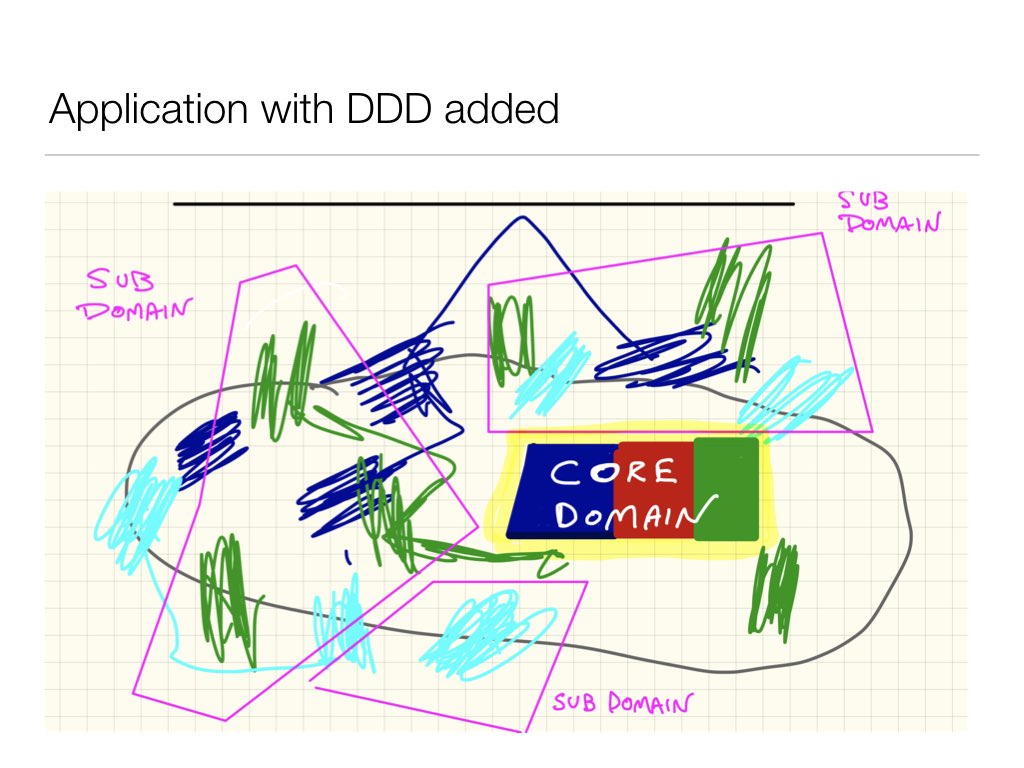 Application with DDD added
SUB
DOMAIN
SUB
DOMAIN
CORE
DOMAIN
SUB DOMAIN